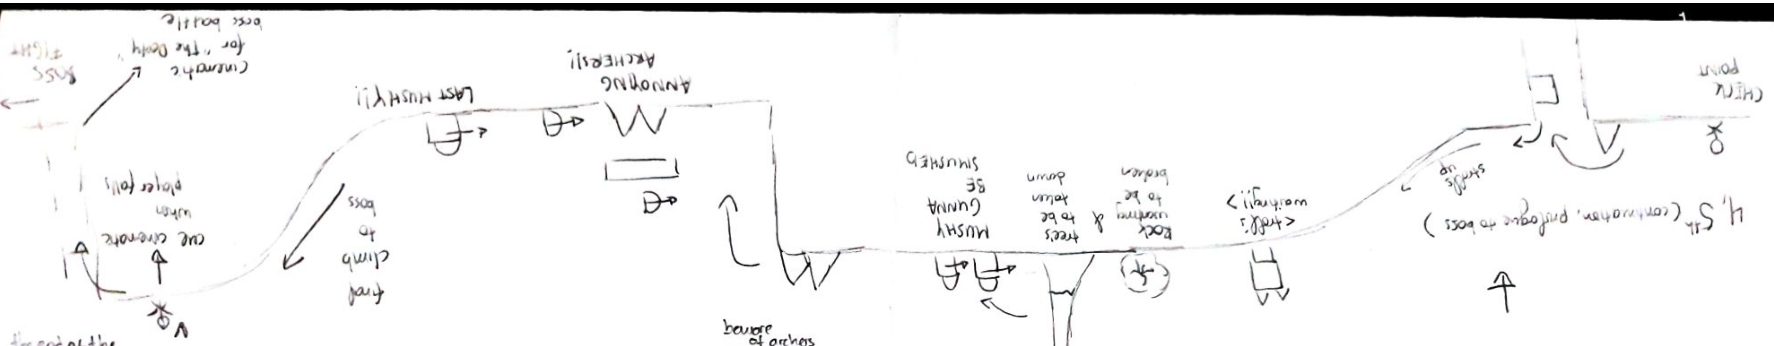 4, 5th (continuation, prologue to boss)
CHECK
POINT
strolls
up
<troll's
waiting!!>
Rock
wanting
to be
broken
&
trees
to be
taken
down
MUSHY
GUNNA
BE
SMUSHED
beware
of arches
ANNOYING
ARCHERS!!
LAST MUSHY!!
final
climb
to
boss
cue cinematic
when
player falls
cinematic
for "The
boss battle
BOSS
FIGHT